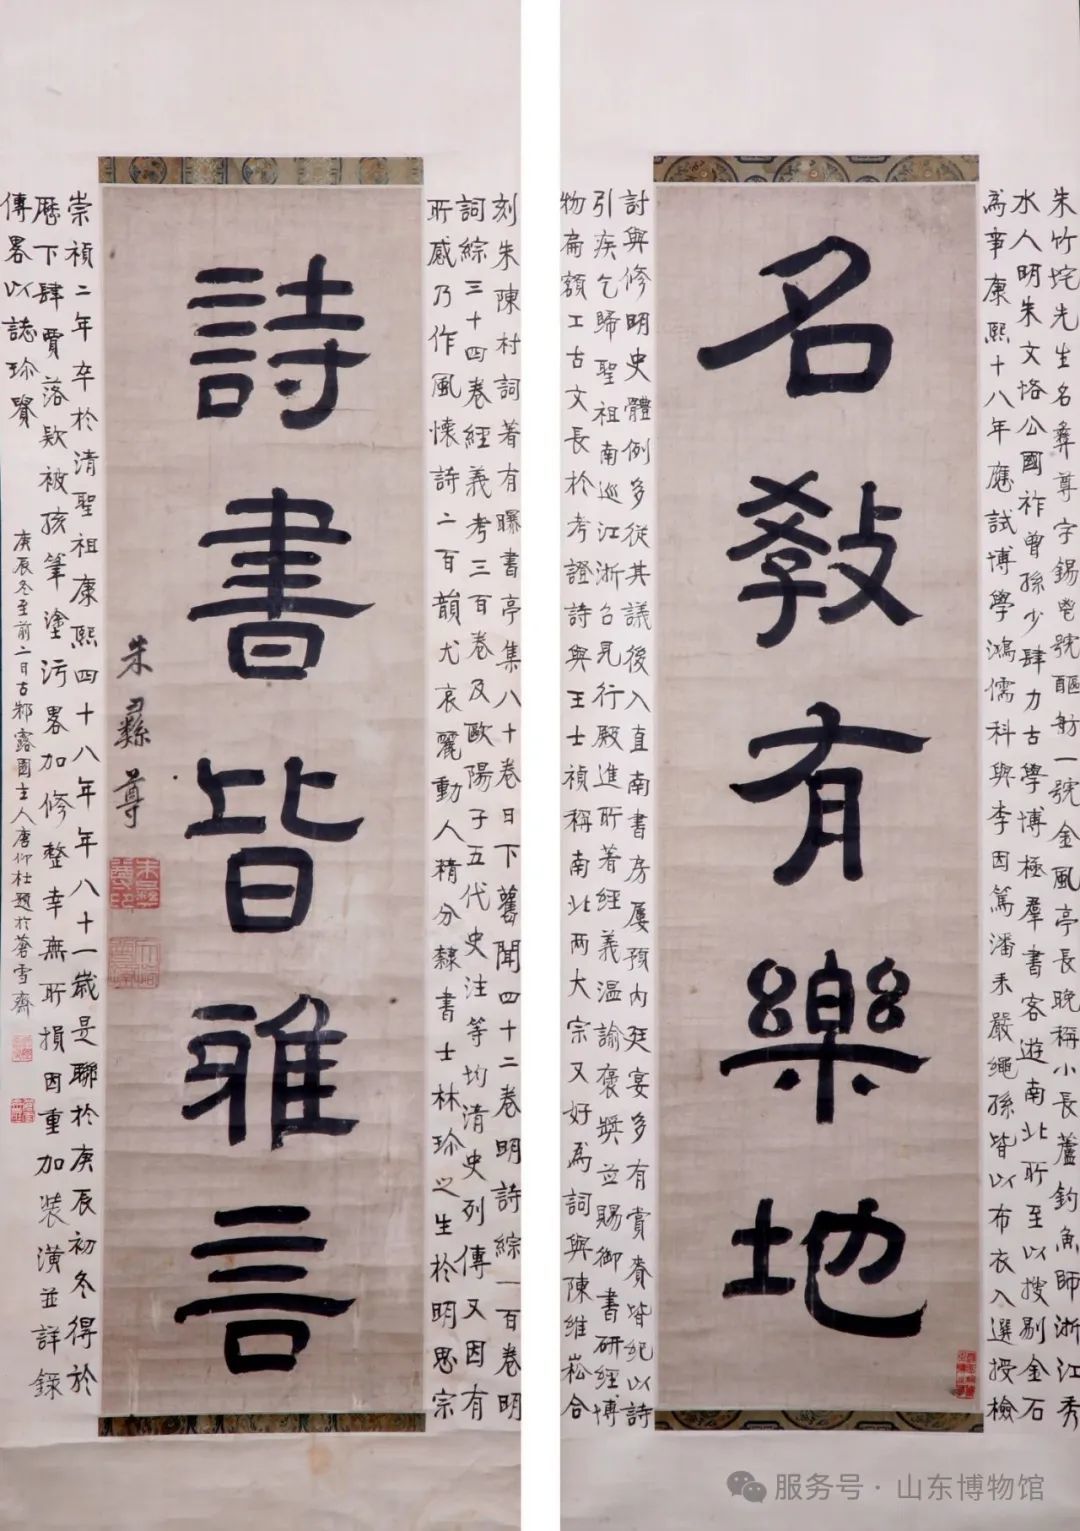 名教有樂地
詩書皆雅言
朱彝尊
朱竹垞先生名彝尊字錫鬯號醧舫一號金風亭長晚稱小長蘆釣魚師浙江秀
水人明朱文恪公國祚曾孫少肆力古學博極羣書客遊南北所至以搜剔金石
為事康熙十八年應試博學鴻儒科與李因篤潘耒嚴繩孫皆以布衣入選授檢
討與修明史體例多從其議後入直南書房屢預內廷宴多有賞賚皆紀以詩
引疾乞歸聖祖南巡江浙召見行殿進所著經義溫諭褒獎並賜御書研經博
物扁額工古文長於考證詩與王士禎稱南北兩大宗又好為詞與陳維崧合
刻朱陳村詞著有曝書亭集八十卷日下舊聞四十二卷明詩綜一百卷明
詞綜三十四卷經義考三百卷及歐陽子五代史注等均清史列傳又因有
所感乃作風懷詩二百韻尤哀麗動人精分隸書士林珍之生於明思宗
崇禎二年卒於清聖祖康熙四十八年年八十一歲是聯於庚辰初冬得於
歷下肆賈落款被孩筆塗污畧加修整幸無所損因重加裝潢並詳錄
傳畧以誌珍賢
庚辰冬至前二日古鄒露園主人唐仰杜題於蒼雪齋
服务号·山东博物馆